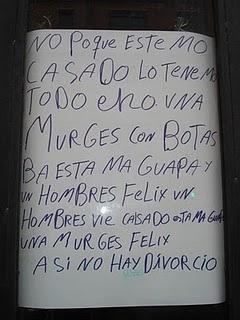 NO POQUE ESTE MO
CASADO LO TENEMO
TODO ECHO. UNA
MURGES CON BOTAS
BA ESTA MA GUAPA Y
UN HOMBRES FELIX UN
HOMBRES VIE CALSADO
UNA MURGES FELIX
ASI NO HAY DIVORCIO